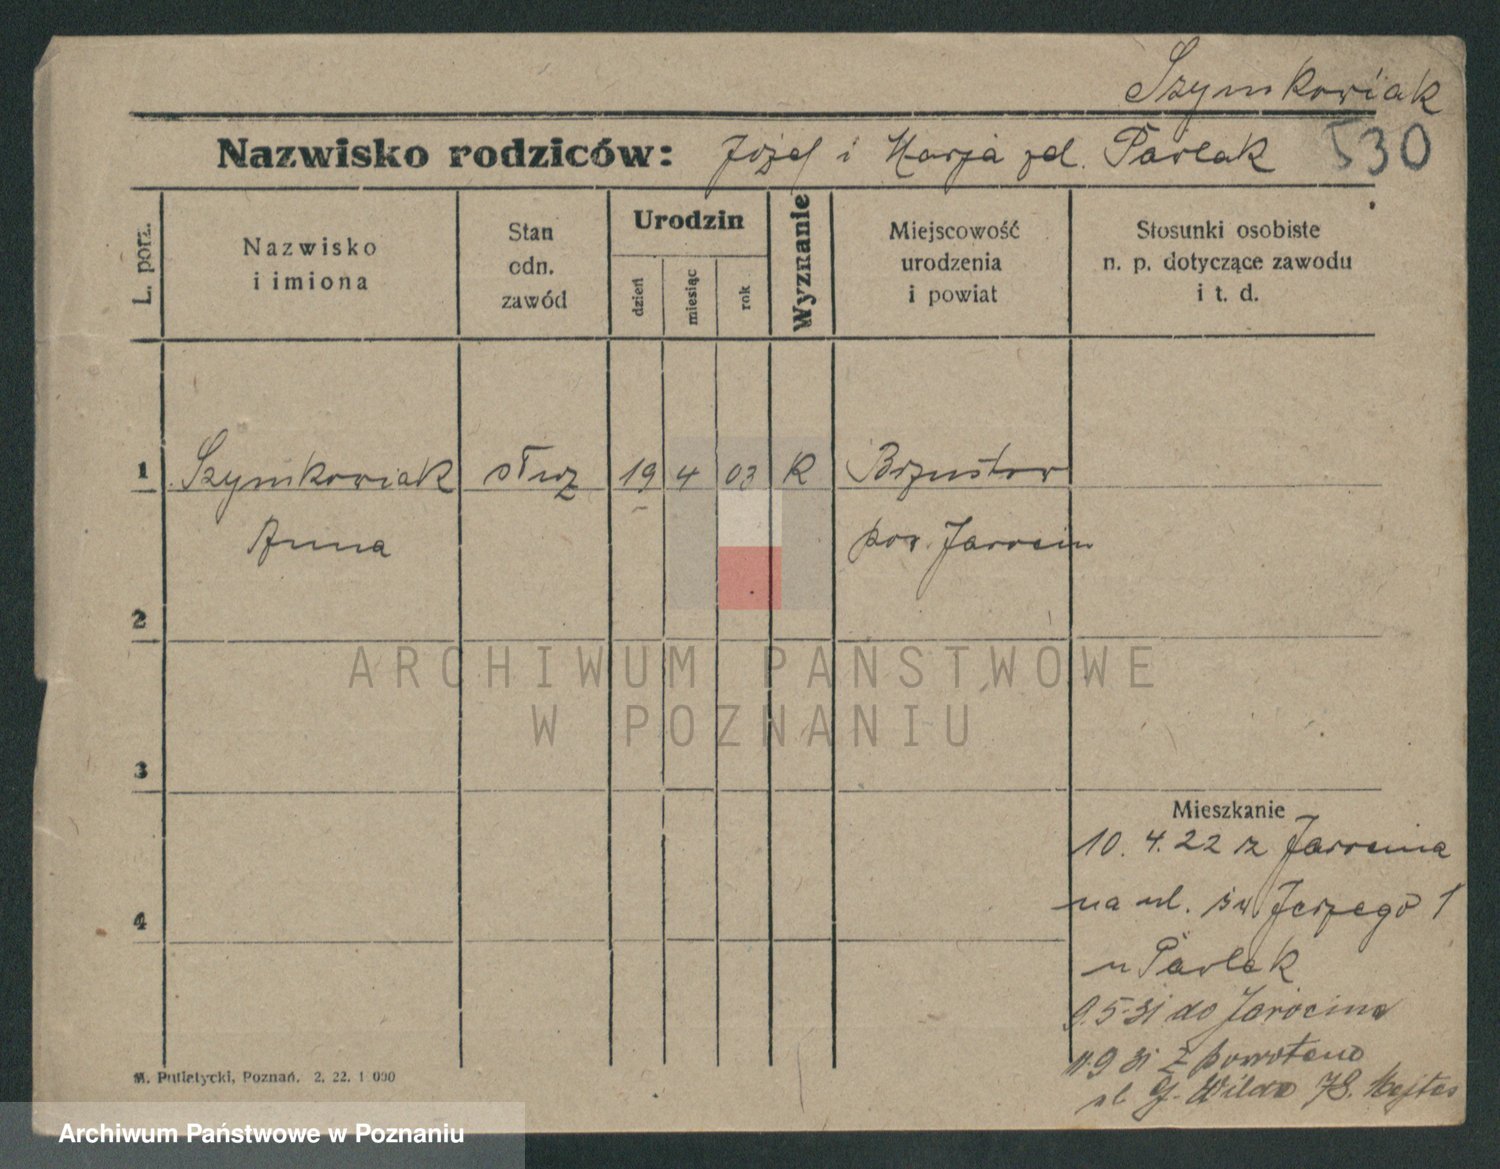 Szymkowiak
Nazwisko rodziców: Józef i Marja zd. Pawlak 530
L. porz.
Nazwisko
i imiona
Stan
odn.
zawód
Urodzin
dzień
miesiąc
rok
Wyznanie
Miejscowość
urodzenia
i powiat
Stosunki osobiste
n. p. dotyczące zawodu
i t. d.
1 Szymkowiak służ 19 4 03 K Brzustow
Anna pow. Jarocin
2
ARCHIWUM PAŃSTWOWE
W POZNANIU
3
Mieszkanie
10. 4. 22 z Jarocina
na ul. św Jerzego 1
4
u Pawlak
9.5.31 do Jarocina
11.9 31 z powrotem
ul G. Wilda 78.
M. Putiatycki, Poznań. 2. 22. 1 000
Archiwum Państwowe w Poznaniu